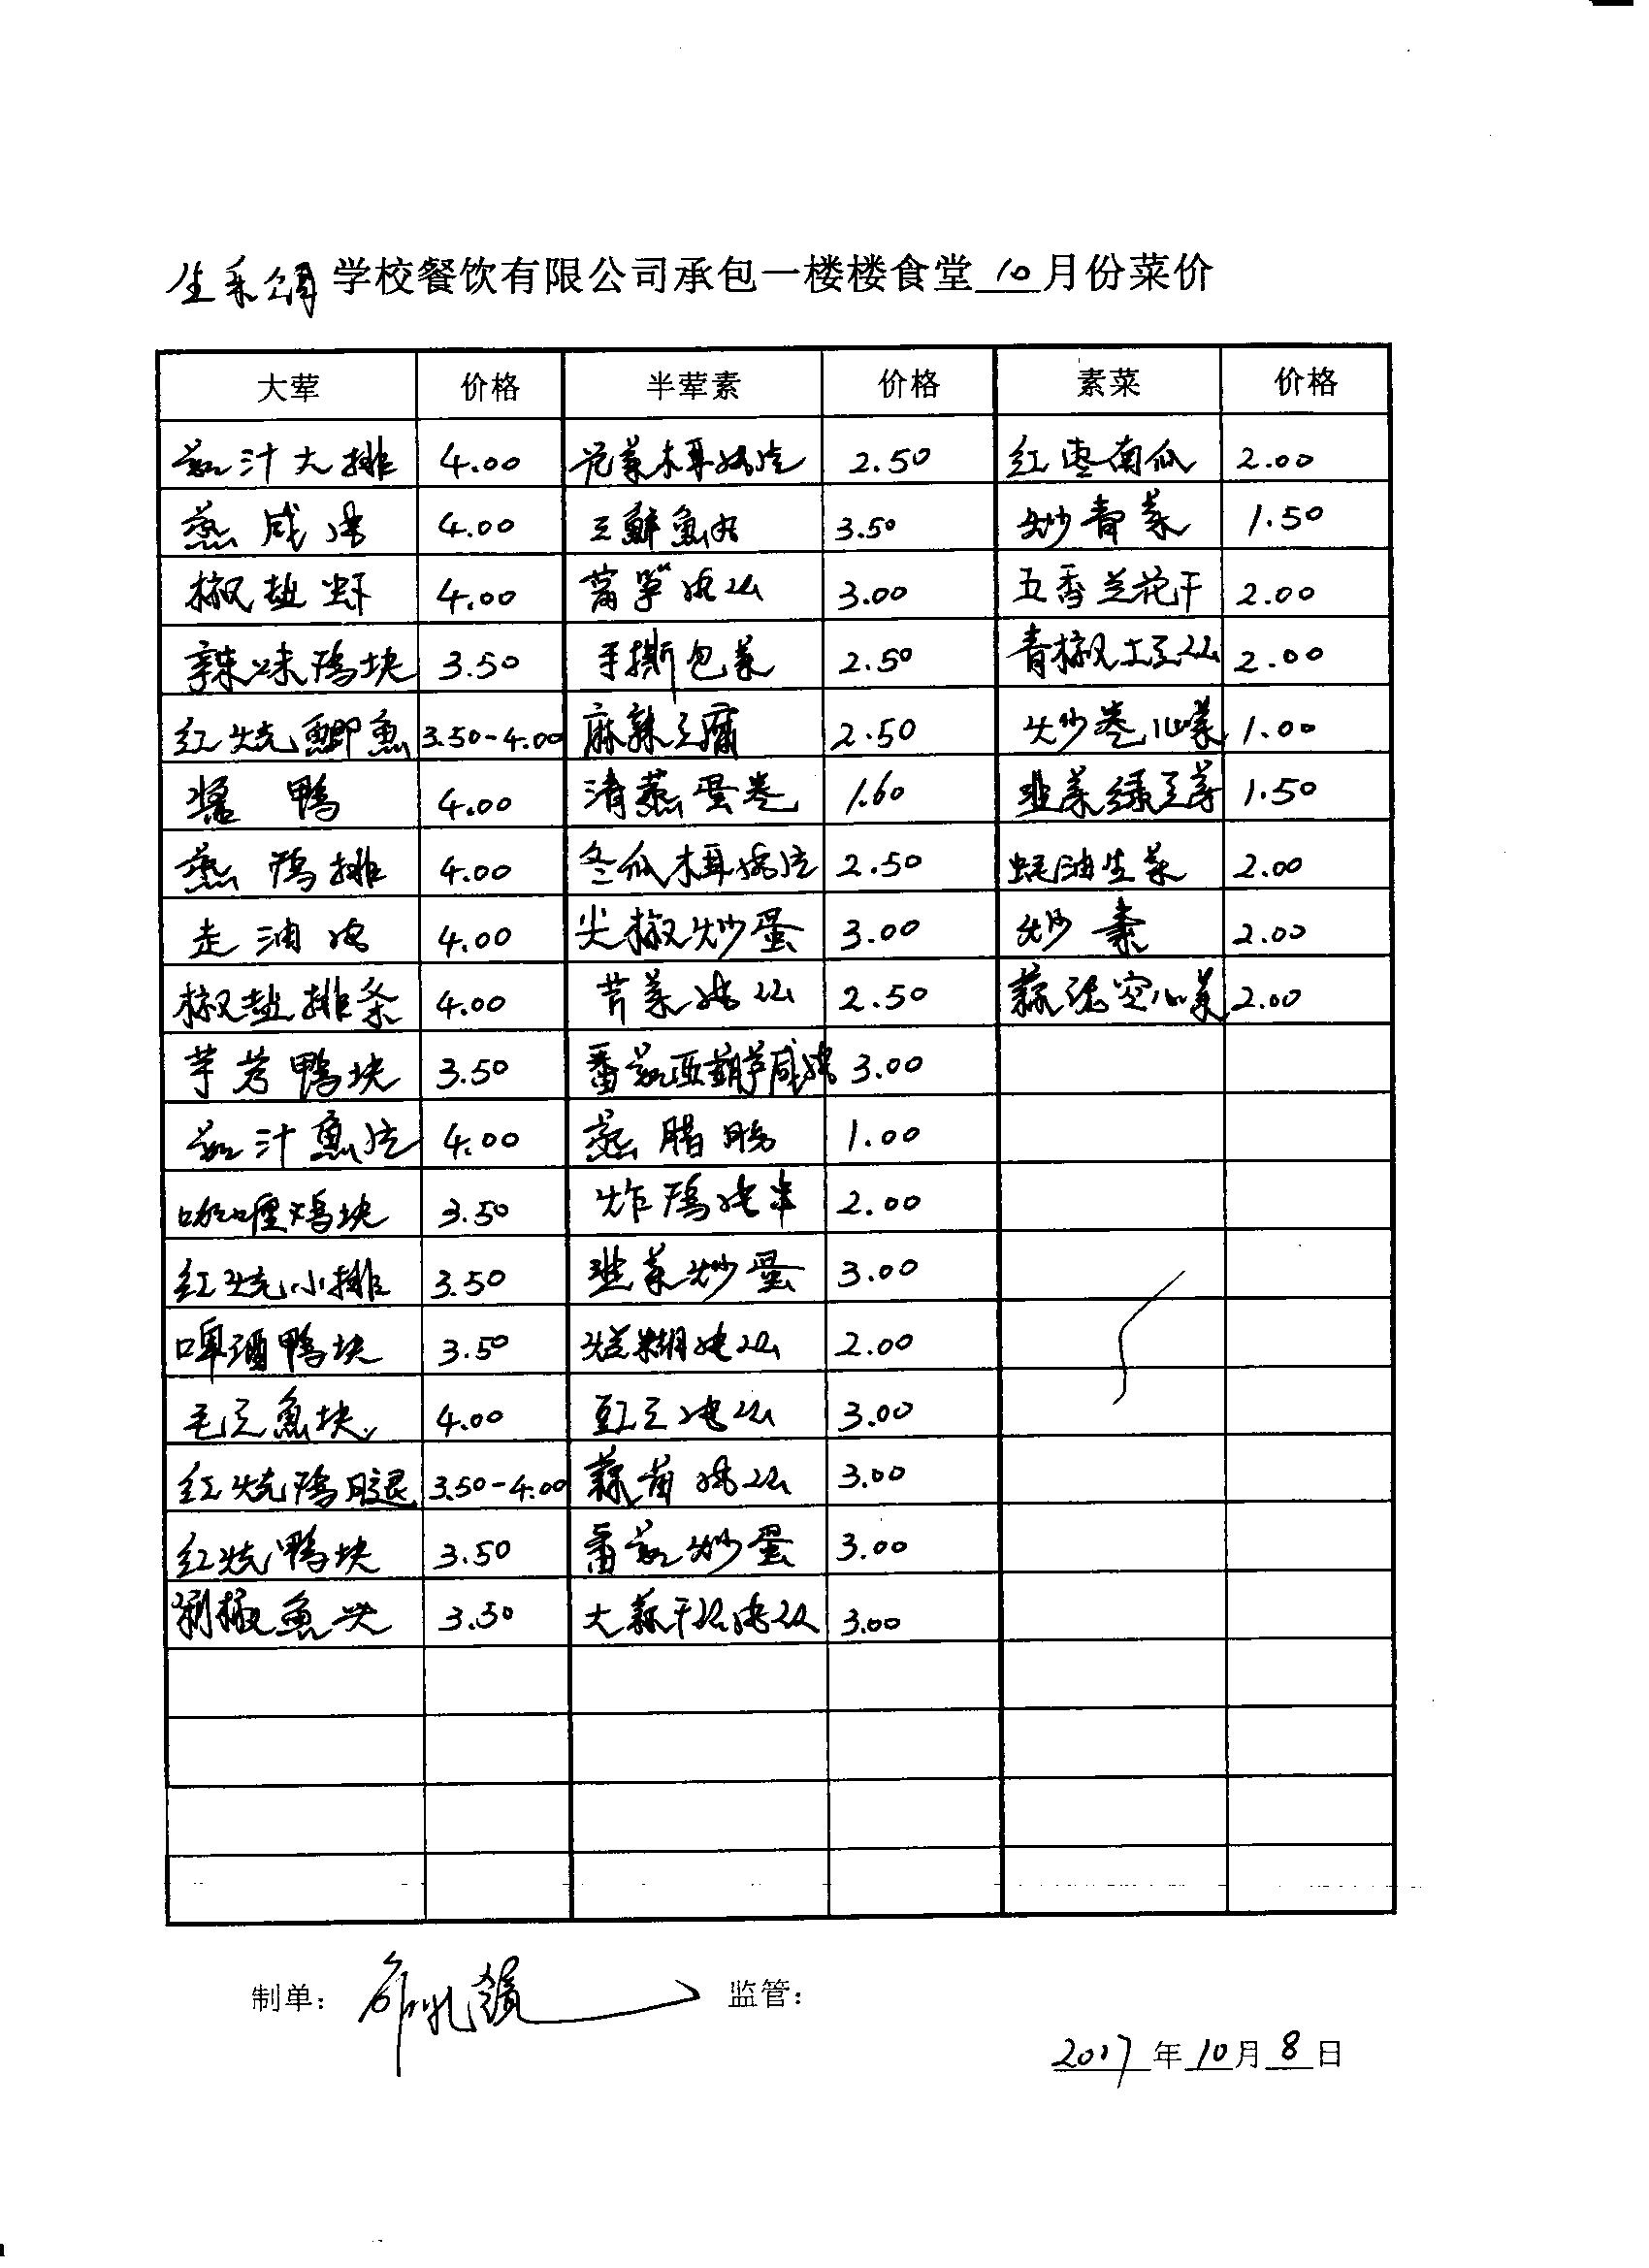 学校餐饮有限公司承包一楼楼食堂10月份菜价
大荤 价格 半荤素 价格 素菜 价格
茄汁大排 4.00 花菜木耳肉片 2.50 红枣南瓜 2.00
蒸咸肉 4.00 三鲜鱼丸 3.50 炒青菜 1.50
椒盐虾 4.00 莴笋肉丝 3.00 五香兰花干 2.00
辣味鸡块 3.50 手撕包菜 2.50 青椒土豆丝 2.00
红烧鲫鱼 3.50-4.00 麻辣豆腐 2.50 炒卷心菜 1.00
酱鸭 4.00 清蒸蛋卷 1.60 韭菜绿豆芽 1.50
蒸鸡排 4.00 冬瓜木耳肉片 2.50 蚝油生菜 2.00
走油肉 4.00 尖椒炒蛋 3.00 炒素 2.00
椒盐排条 4.00 芹菜肉丝 2.50 蒜泥空心菜 2.00
芋艿鸭块 3.50 番茄西葫芦咸肉 3.00
茄汁鱼片 4.00 蒸腊肠 1.00
咖喱鸡块 3.50 炸鸡肉串 2.00
红烧小排 3.50 韭菜炒蛋 3.00
啤酒鸭块 3.50 烂糊肉丝 2.00
毛豆鱼块 4.00 豇豆肉丝 3.00
红烧鸡腿 3.50-4.00 蒜苗肉丝 3.00
红烧鸭块 3.50 番茄炒蛋 3.00
剁椒鱼头 3.50 大蒜干丝肉丝 3.00
制单： 监管：
2017年10月8日